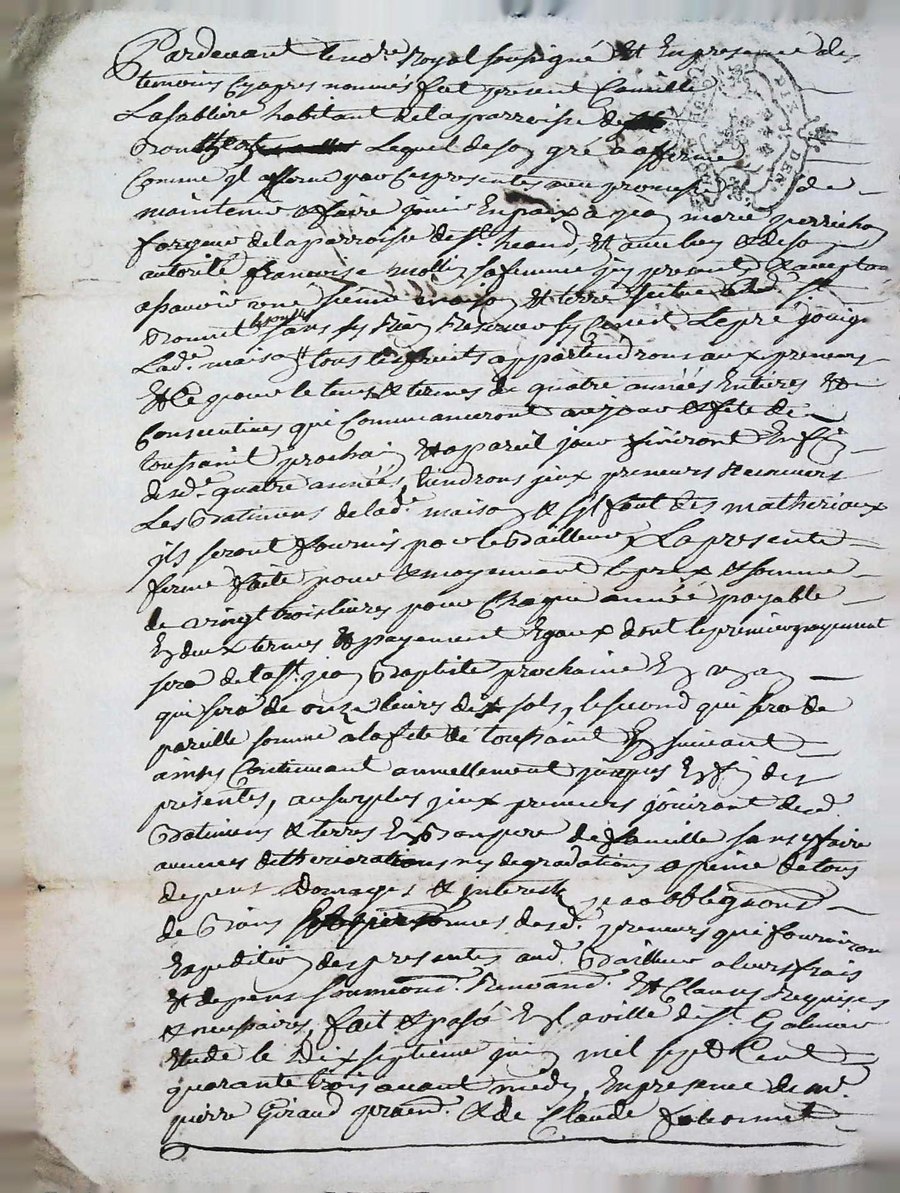 Pardevant le no.re Royal soussigné Et En presence des
temoins Cy apres nommés fut present Camille
Lasabliere habitant de la parroisse de
Lequel de son gré a affermé
Comme Jl afferme par Ces presentes avec promesse de
maintenir & faire jouir En paix a jean marie perrichon
forgeur de la parroisse de st. heand, Et avec luy & de son
autorité francoise mollin sa femme jcy presents & acceptants
a scavoir une sienne maison Et terre scitue st.
bonnet les oulles sans sy Rien Reserver sy Ce n'est Le pré joignt
Lade. maison tous les fruits appartiendrons aux preneurs
Et Ce pour le tems & termes de quatre années Entieres &
Consecutives qui Commanceront au jour & fete de
toussaint prochain Et a pareil jour finiront En fin
desde. quatre années, tiendrons jceux preneurs
Les Batimens de lade. maison & s'jl faut des matheriaux
jls seront fournis par le Bailleur, La presente
ferme faite pour & moyennant le prix & somme
de vingt trois livres pour Chaque année payable
En deux termes & payement Egaux dont le premier payement
sera de la st. jean Baptiste prochaine En un an
qui sera de onze livres dix sols, le second qui sera de
pareille somme a la fete de toussaint En suivant
ainsy Continuant annuellement jusques En fin des
presentes, au surplus jceux preneurs jouiront desd.
Batimens & terres En Bon pere de famille sans y faire
aucunes detheriorations ny degradations a peine de tous
despens domages & interest, & a obligations
de Biens desd. preneurs que fourniron
Expedition des presentes aud. Bailleur a leurs frais
Et depens soumiond. Renuand. Et Clauses Requises
& necessaires, fait & passé En la ville de st. Galmier
Etude le Dix septieme juin mil sept Cent
quarante trois avant midy, En presence de mr.
pierre Giraud pratn. & de Claude